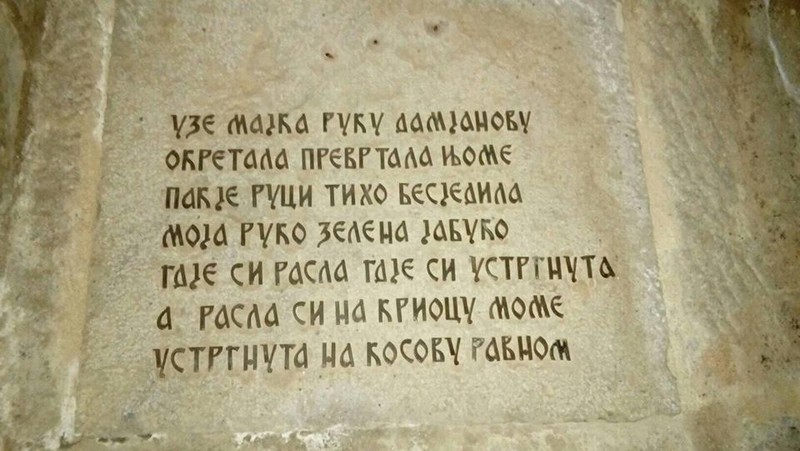 УЗЕ МАЈКА РУКУ ДАМЈАНОВУ
ОКРЕТАЛА ПРЕВРТАЛА ЊОМЕ
ПАКЈЕ РУЦИ ТИХО БЕСЈЕДИЛА
МОЈА РУКО ЗЕЛЕНА ЈАБУКО
ГДЈЕ СИ РАСЛА ГДЈЕ СИ УСТРГНУТА
А РАСЛА СИ НА КРИОЦУ МОМЕ
УСТРГНУТА НА КОСОВУ РАВНОМ